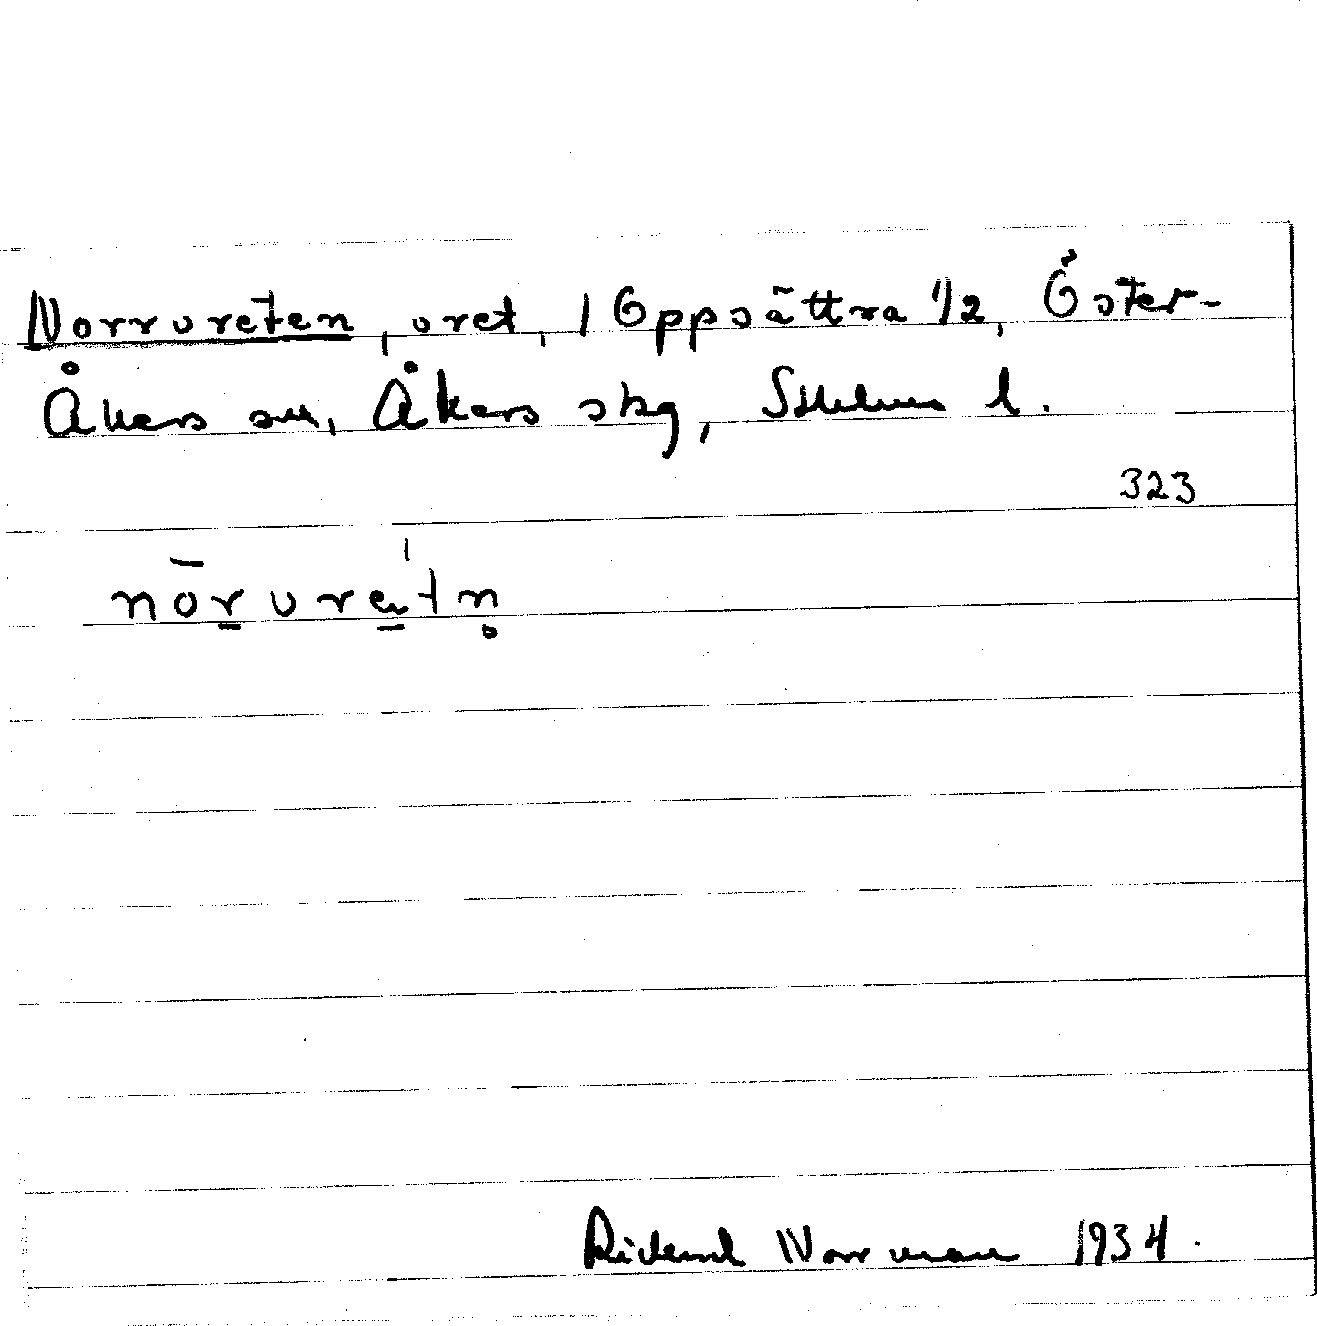 Norrvreten, vret, 1 Oppsättra 1/2, Öster-
Åkers sn, Åkers skg, Sthlms l.
323
nōrvretn
Rickard Norrman 1934.